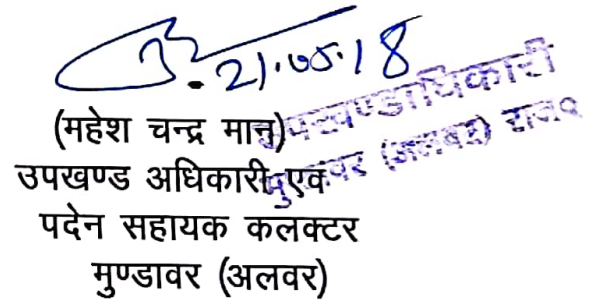 21.05.18
(महेश चन्द्र मान)
उपखण्ड अधिकारी एवं
पदेन सहायक कलक्टर
मुण्डावर (अलवर)
उपखण्डाधिकारी
मुण्डावर (अलवर) राज०